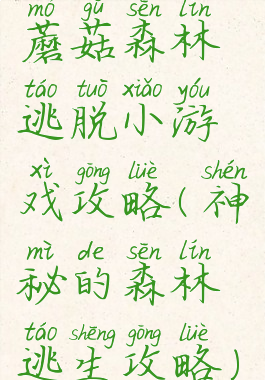 mó gū sēn lín
蘑菇森林
táo tuō xiǎo yóu
逃脱小游
xì gōng lüè shén
戏攻略(神
mì de sēn lín
秘的森林
táo shēng gōng lüè
逃生攻略)